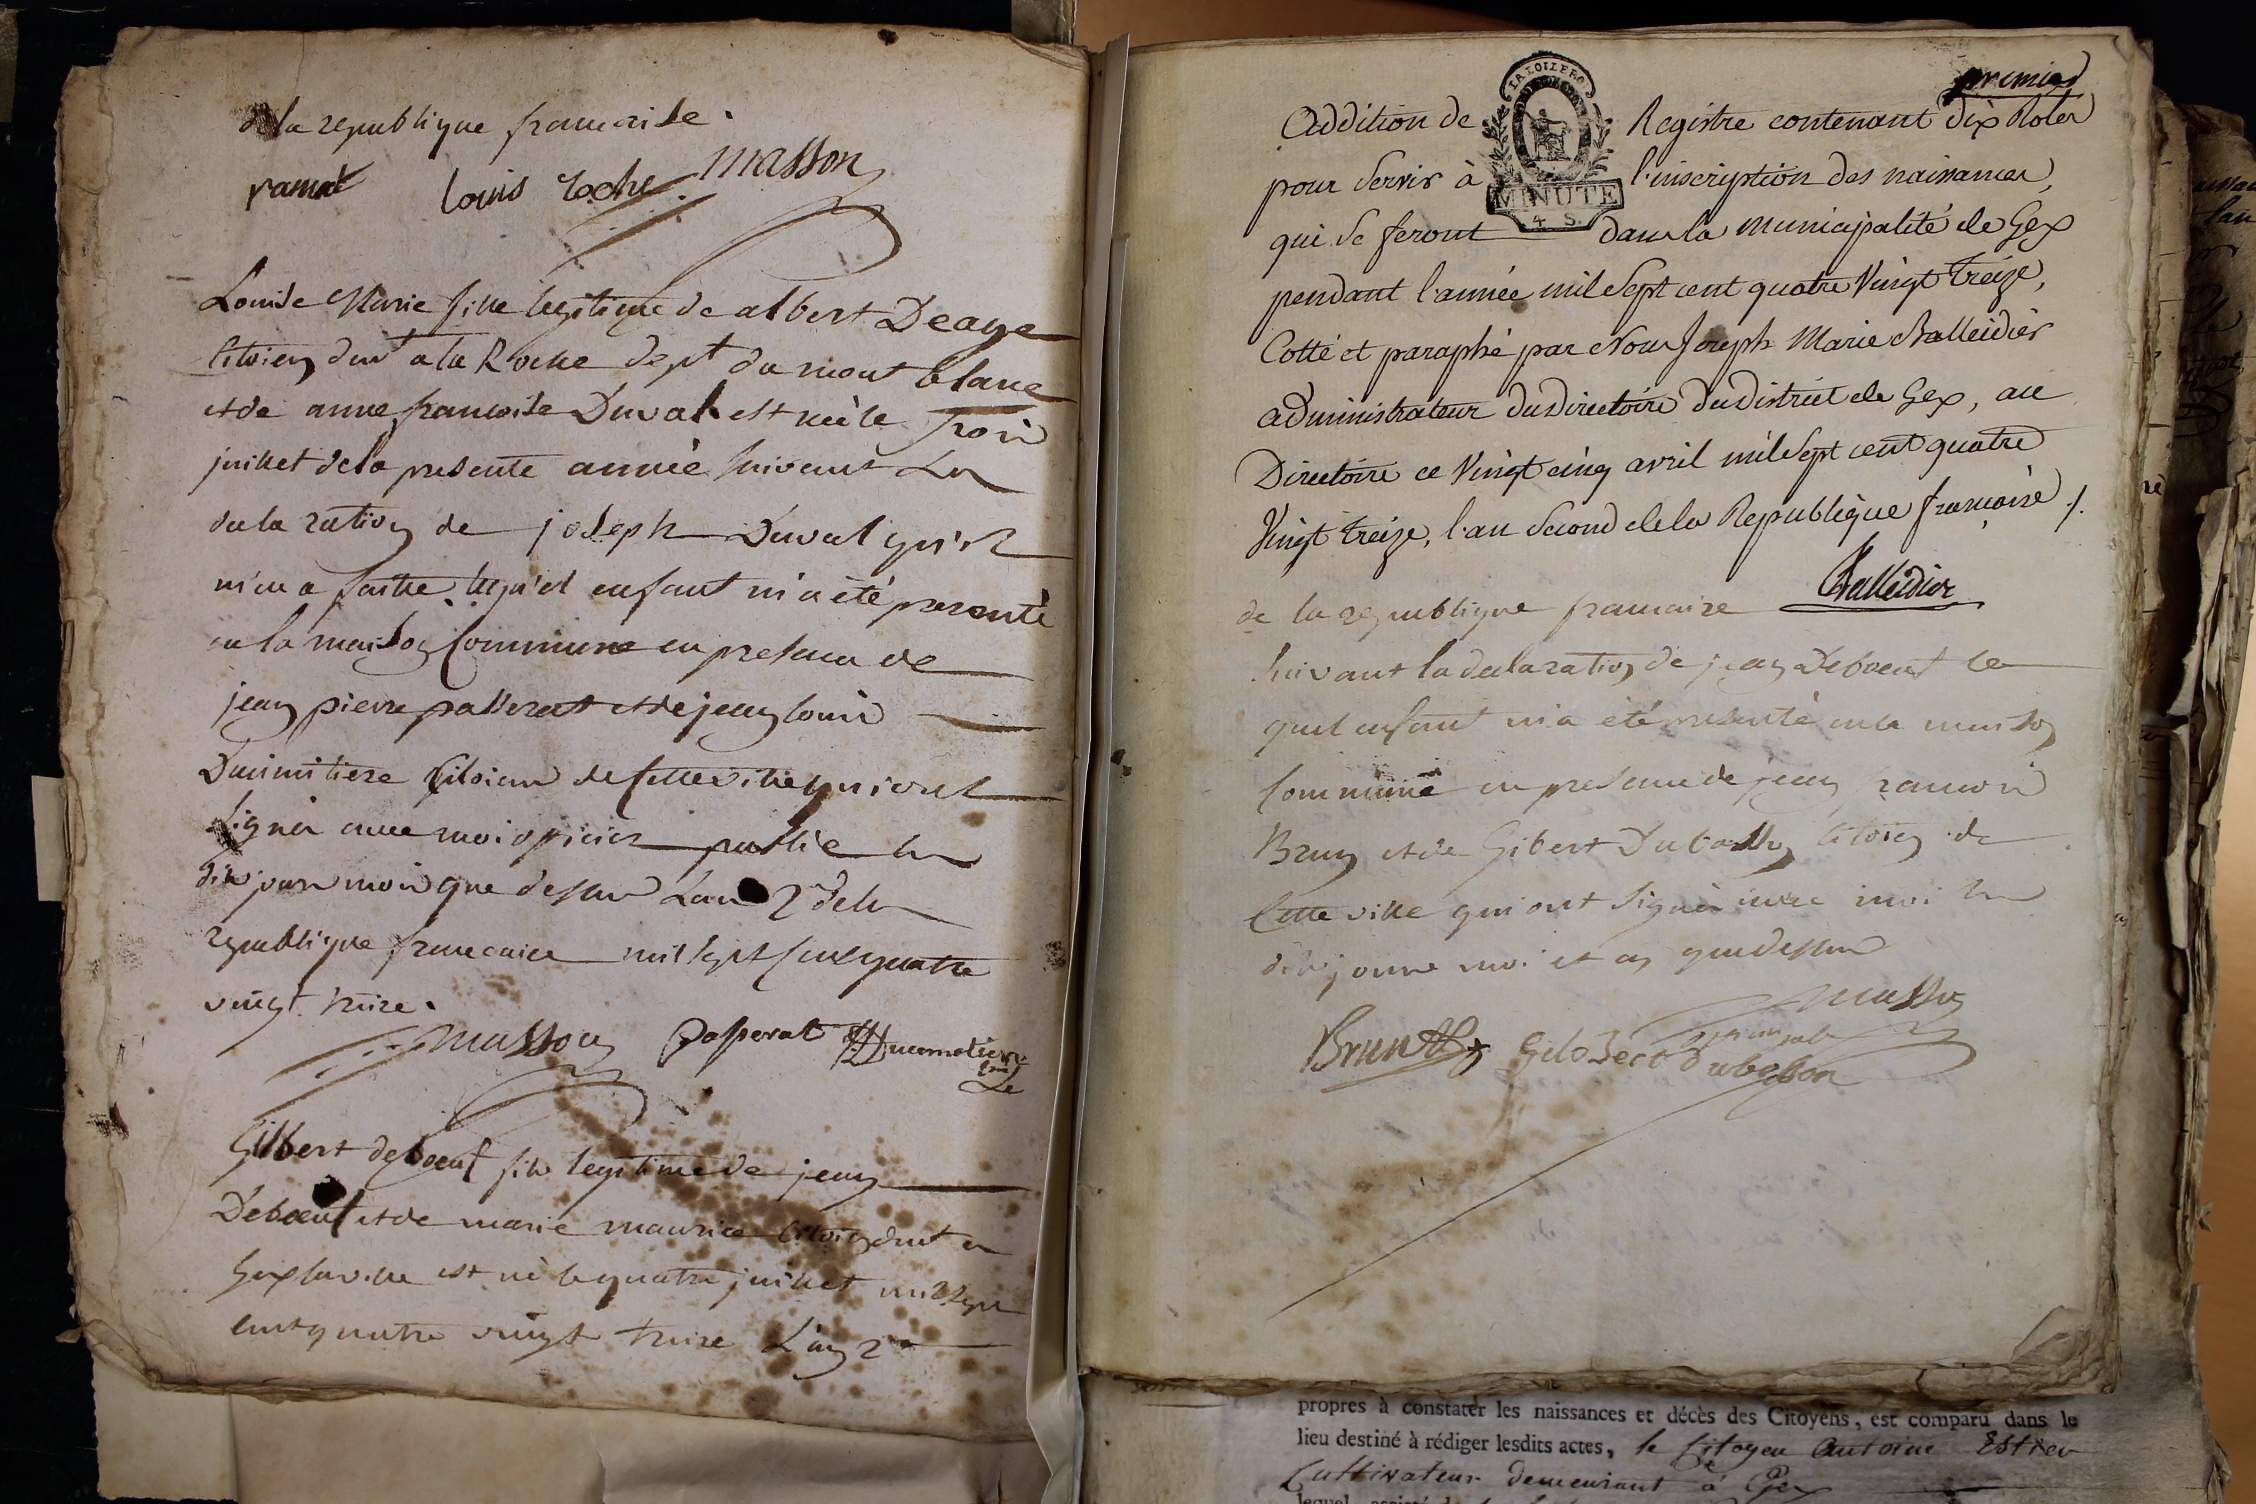 de la republique francaise.
ramel louis roche masson
Louise Marie fille legitime de albert Deage
Citoien dmt a la Roche dept du mont blanc
et de anne francoise Duval est neè le trois
juillet de la presente anneè suivant la
declaration de joseph Duval qu'il
m'en a faitte. lequel enfant m'a eté presenté
en la maison Commune en presence de
jean pierre passerat et de jean louis
Ducimitiere Citoiens de cette ville qui ont
signés avec moi officier public les
dits jours mois que dessus Lan 2 de la
republique francaise mil sept cent quatre
vingt treize.
masson Passerat Ducimetiere
Gilbert deboeuf fils legitime de jean
Deboeuf et de marie maurice Citoien dmt a
Gex la ville est né le quatre juillet mil sept
cent quatre vingt treize L'an 2e
premier
Addition de Registre contenant dix Roles
pour servir à l'inscription des naissances,
LA LOI LE ROI
MINUTE
4 S.
qui se feront dans la municipalité de Gex
pendant l'année mil sept cent quatre Vingt Treize,
Cotté et paraphé par Nous Joseph Marie Balleidier
administrateur du directoire du District de Gex, au
Directoire ce Vingt cinq avril mil sept cent quatre
Vingt Treize, l'an second de la Republique francoise ./.
Balleidier
de la republique francaise
suivant la declaration de jean Deboeuf le
quel enfant m'a eté presenté en la maison
Commune en presence de jean francois
Brun et de Gibert Dubosson Citoien de
Cette ville qui ont signés avec moi les
dits jour moi et an que dessus
masson
Brun Gilbert dubosson
propres à constater les naissances et décès des Citoyens, est comparu dans le
lieu destiné à rédiger lesdits actes, le Citoyen Antoine Estier
Cultivateur demeurant à Gex